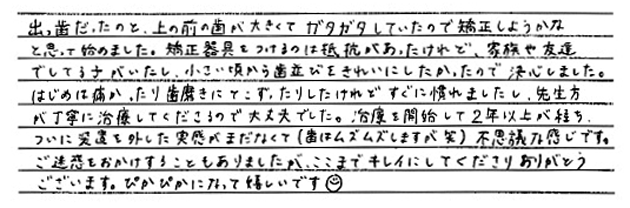 出っ歯だったのと、上の前の歯が大きくてガタガタしていたので矯正しようかな
と思って始めました。矯正器具をつけるのは抵抗があったけれど、家族や友達
でしてる子がいたし、小さい頃から歯並びをきれいにしたかったので決心しました。
はじめは痛かったり歯磨きにてこずったりしたけれどすぐに慣れましたし、先生方
が丁寧に治療してくださるので大丈夫でした。治療を開始して2年以上が経ち、
ついに装置を外した実感がまだなくて(歯はムズムズしますが笑)不思議な感じです。
ご迷惑をおかけすることもありましたが、ここまでキレイにしてくださりありがとう
ございます。ぴかぴかになって嬉しいです☺